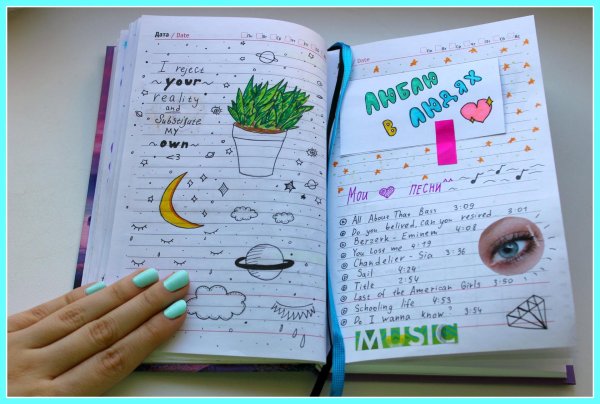 Дата / Date
I reject
~ your ~
reality
and
Substitute
MY
~ own ~
<3
/ Date
ЛЮБЛЮ
В ЛЮДЯХ
Мои песни
All About That Bass 3:09
Do you belived, can you resived 3:01
Berzerk - Eminem 4:08
You Loss me 4:19
Chandelier - Sia 3:36
Sail 4:24
Title 2:54
Last of the American Girls 3:50
Schooling life 4:53
Do I wanna know? 3:54
MUSIC